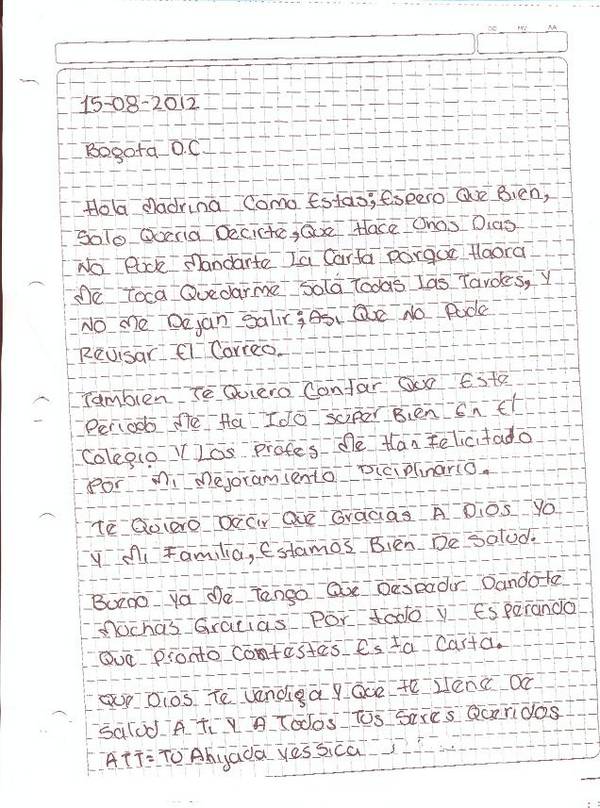 DD MM AA
15-08-2012
Bogota D.C
Hola Madrina Como Estas; Espero Que Bien,
Solo Queria Decirte, Que Hace Unos Dias
No Pude Mandarte La Carta Porque Haora
Me Toca Quedarme Sola Todas Las Tardes, Y
No Me Dejan Salir; Asi Que No Pude
Revisar El Correo.
Tambien Te Quiero Contar Que Este
Periodo Me Ha Ido super Bien En El
Colegio Y Los Profes Me Han Felicitado
Por Mi Mejoramiento Diciplinario.
Te Quiero Decir Que Gracias A Dios Yo
Y Mi Familia, Estamos Bien De Salud.
Bueno Ya Me Tengo Que Despedir Dandote
Muchas Gracias Por todo Y Esperando
Que Pronto Contestes Esta Carta.
Que Dios Te Vendiga Y Que te Llene De
Salud A Ti Y A Todos Tus Seres Queridos
ATT= TU Ahijada Yessica